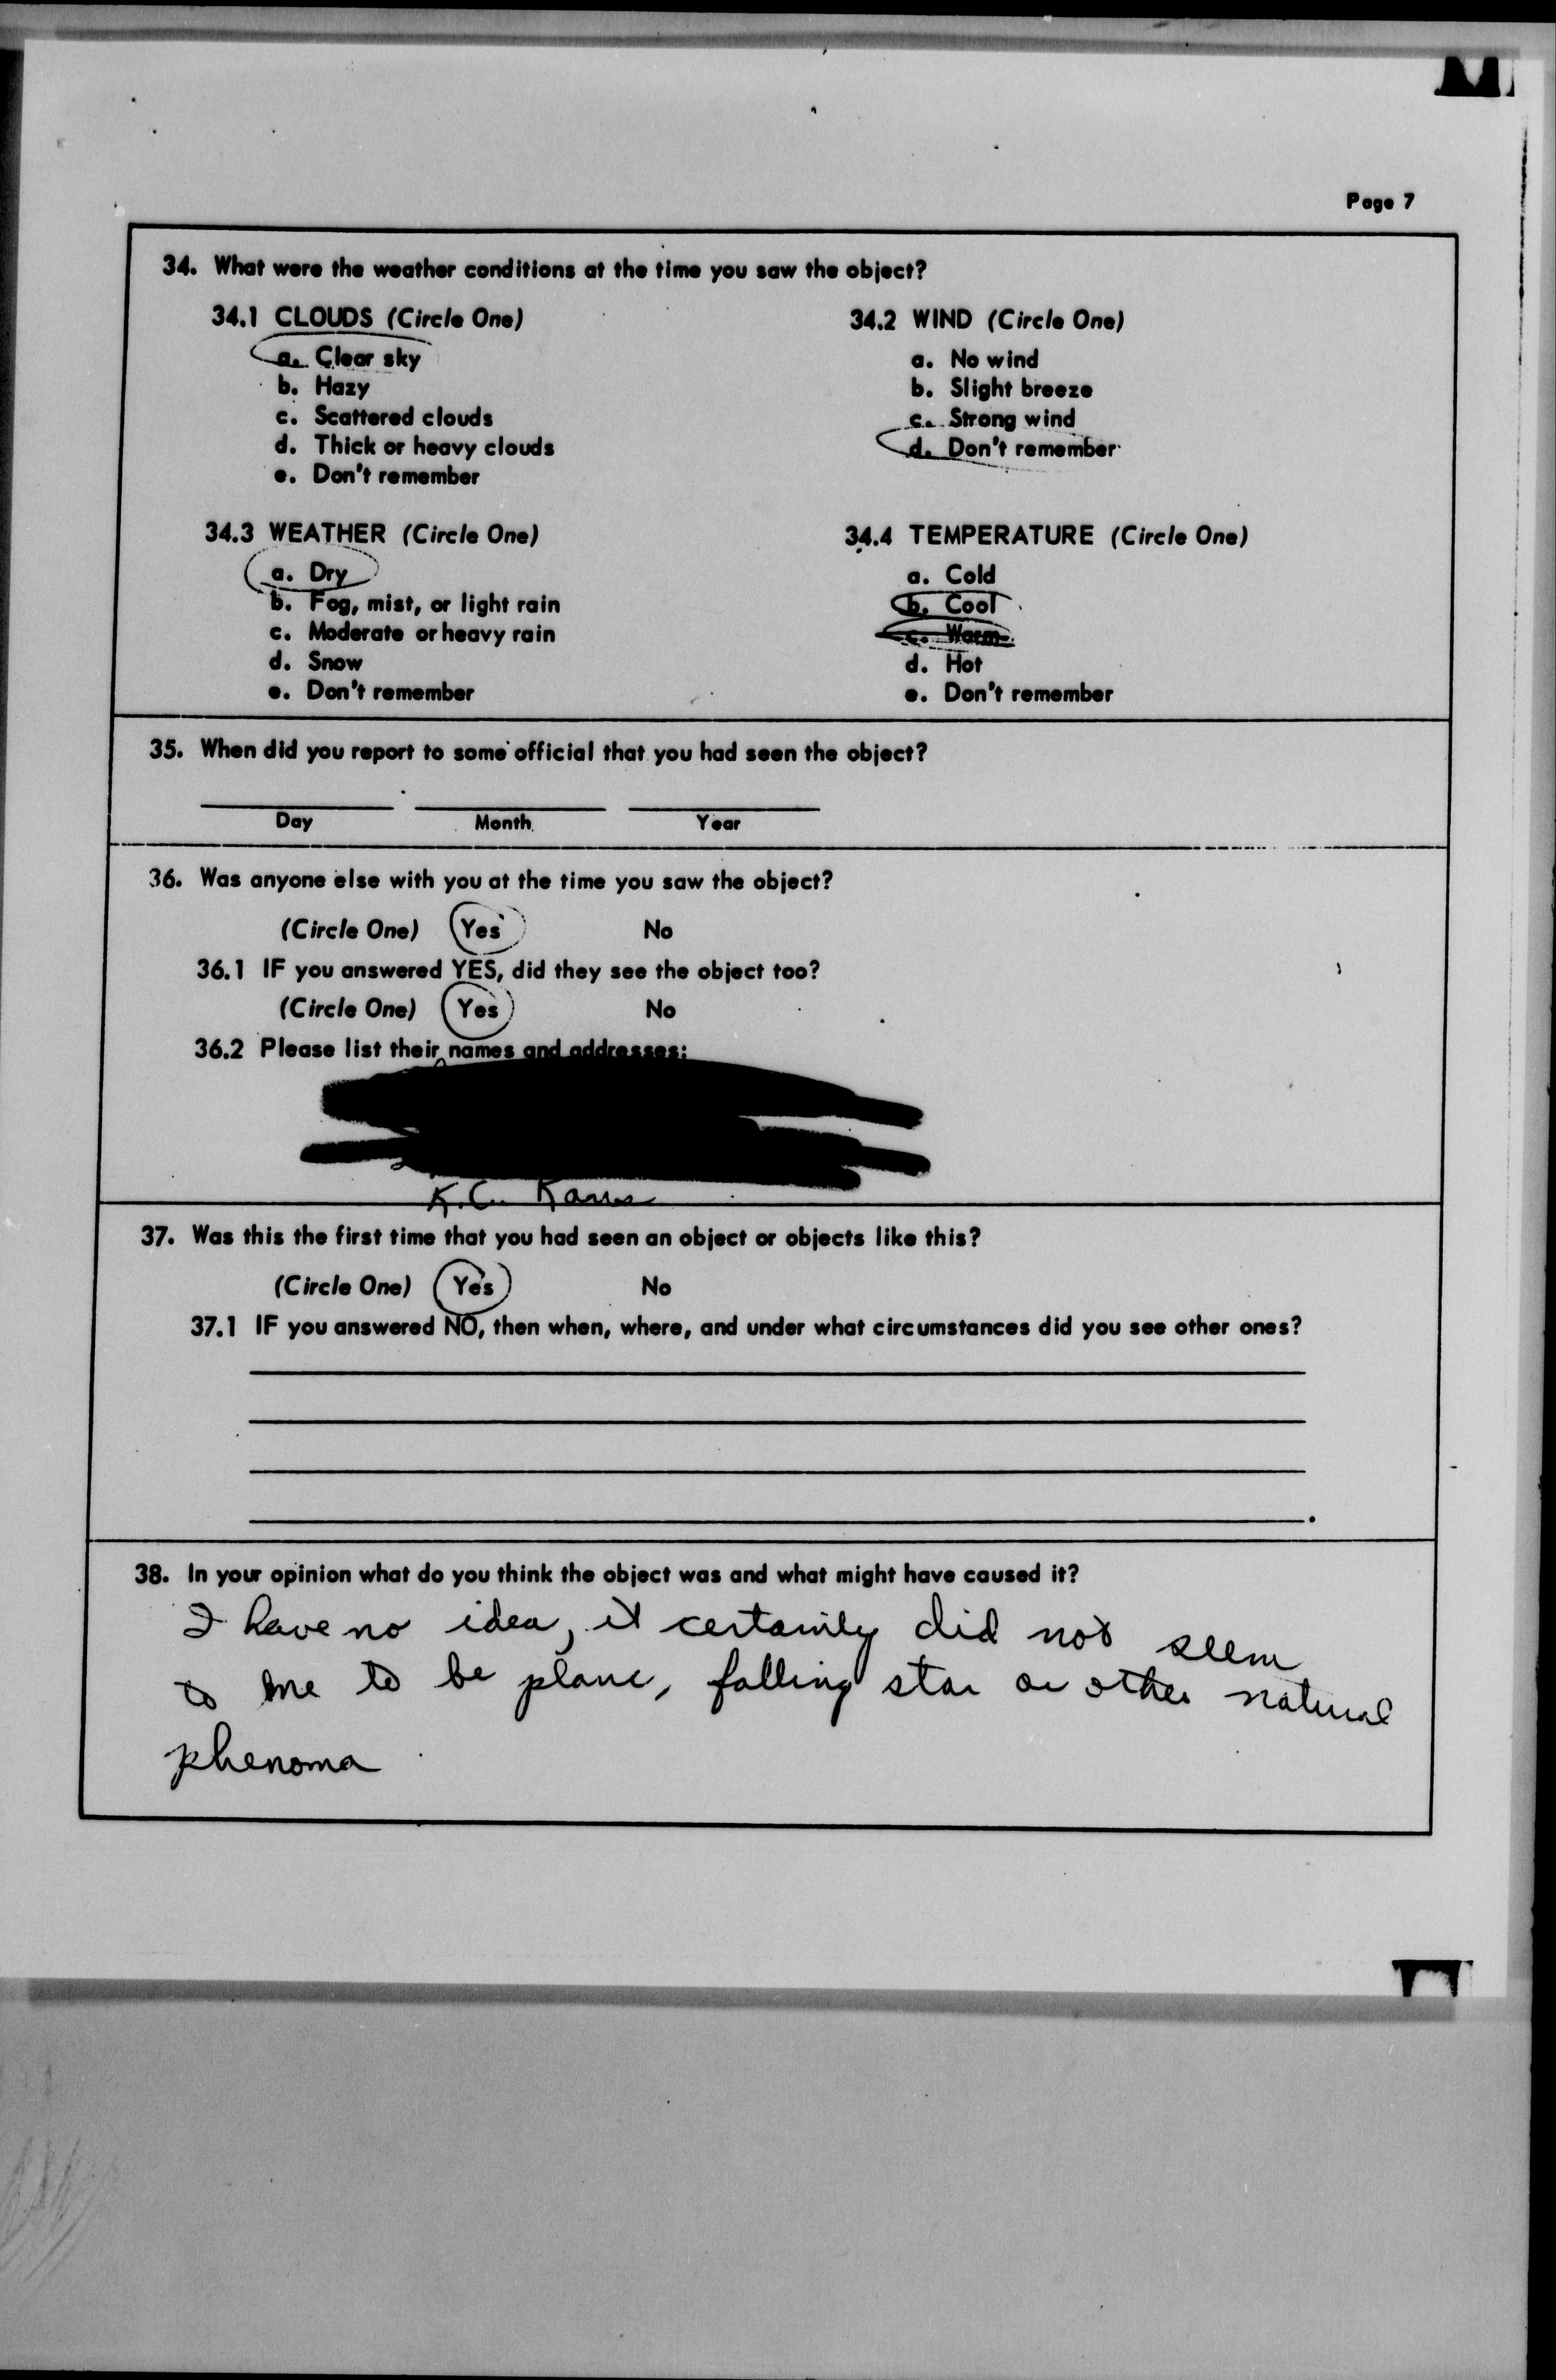 Page 7
34. What were the weather conditions at the time you saw the object?
34.1 CLOUDS (Circle One)
a. Clear sky
b. Hazy
c. Scattered clouds
d. Thick or heavy clouds
e. Don't remember
34.2 WIND (Circle One)
a. No wind
b. Slight breeze
c. Strong wind
d. Don't remember
34.3 WEATHER (Circle One)
a. Dry
b. Fog, mist, or light rain
c. Moderate or heavy rain
d. Snow
e. Don't remember
34.4 TEMPERATURE (Circle One)
a. Cold
b. Cool
c. Warm
d. Hot
e. Don't remember
35. When did you report to some official that you had seen the object?
Day Month Year
36. Was anyone else with you at the time you saw the object?
(Circle One) Yes No
36.1 IF you answered YES, did they see the object too?
(Circle One) Yes No
36.2 Please list their names and addresses:
K.C. Kans
37. Was this the first time that you had seen an object or objects like this?
(Circle One) Yes No
37.1 IF you answered NO, then when, where, and under what circumstances did you see other ones?
38. In your opinion what do you think the object was and what might have caused it?
I have no idea, it certainly did not seem
to me to be plane, falling star or other natural
phenoma